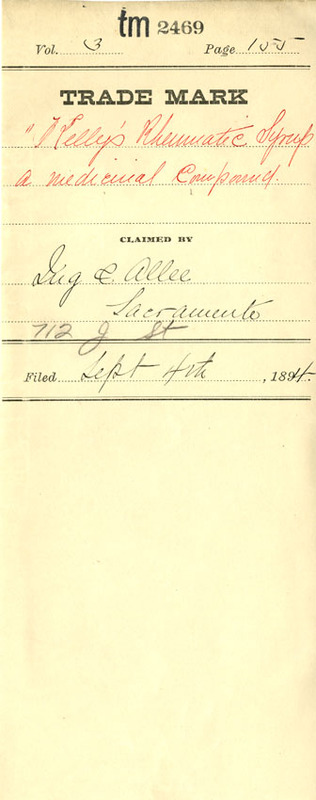 tm 2469
Vol. 3 Page 155
TRADE MARK
"Kelly's Rheumatic Syrup
a medicinal Compound.
CLAIMED BY
Ing & Allee
Sacramento
712 J St
Filed Sept 4th, 1894.